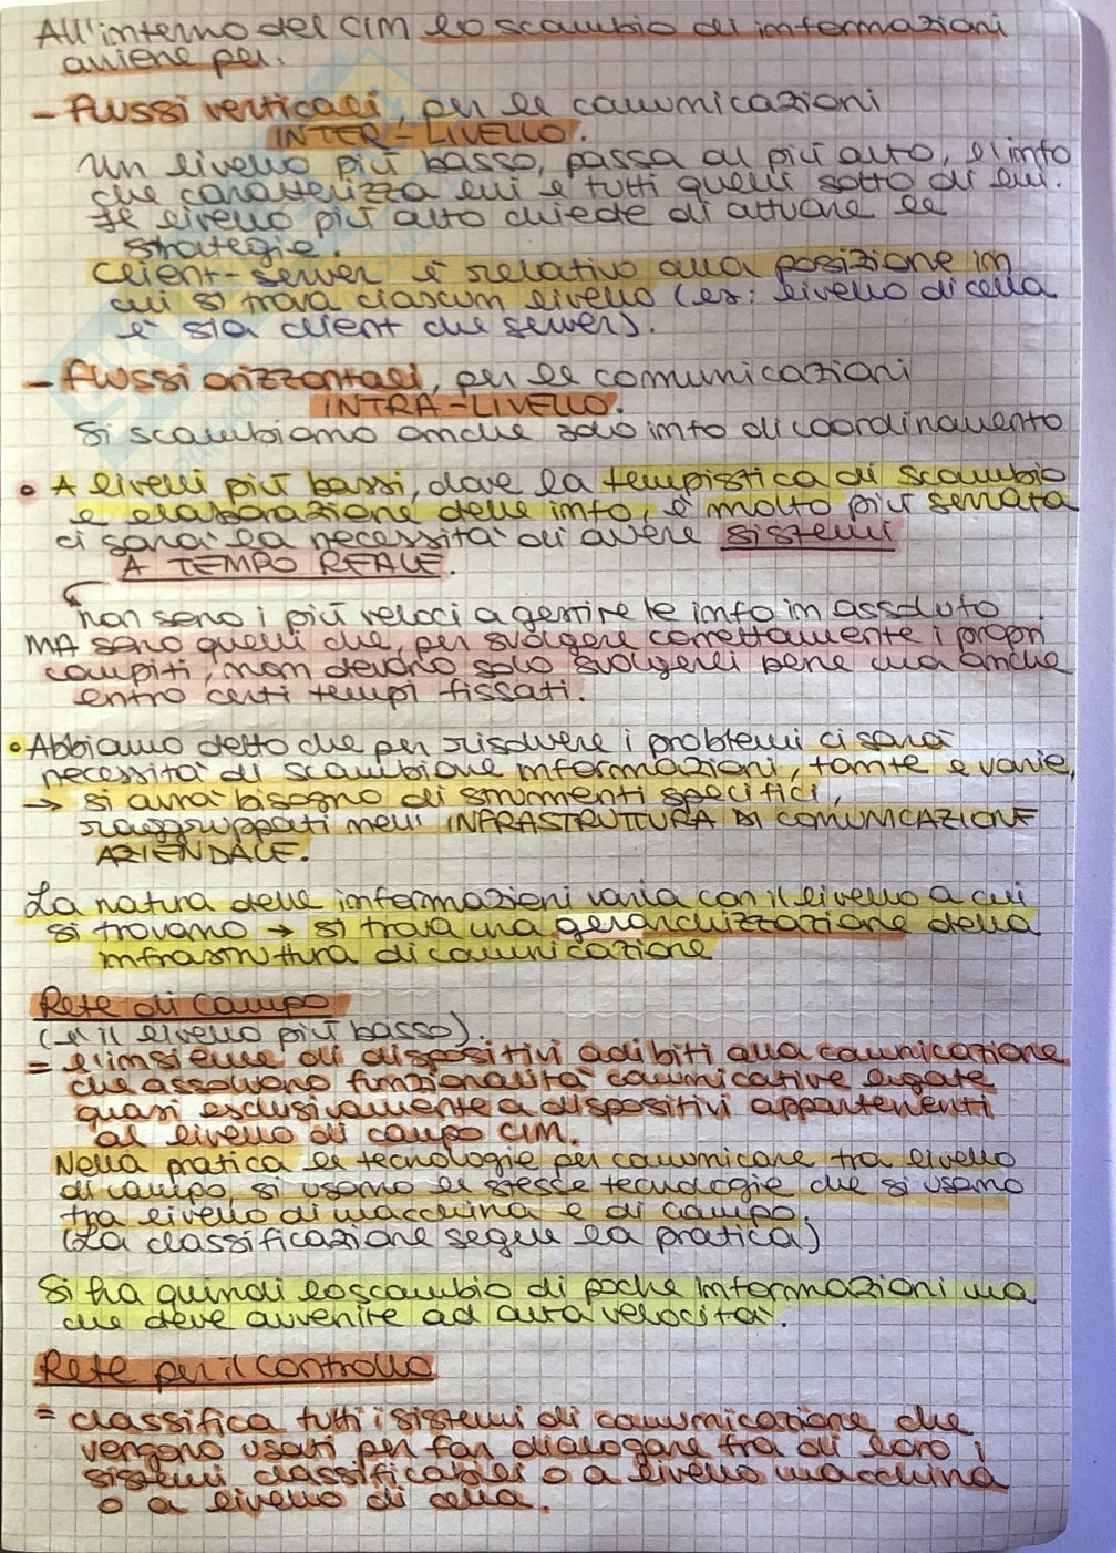 All'interno del CIM lo scambio di informazioni
avviene per:
- flussi verticali, per le comunicazioni
INTER-LIVELLO.
Un livello più basso, passa al più alto, l'info
che caratterizza lui e tutti quelli sotto di lui.
Il livello più alto chiede di attuare le
strategie.
Client-server è relativo alla posizione in
cui si trova ciascun livello (es: livello di cella
è sia client che server).
- flussi orizzontali, per le comunicazioni
INTRA-LIVELLO.
Si scambiano anche solo info di coordinamento
• A livelli più bassi, dove la tempistica di scambio
e elaborazione delle info, è molto più serrata
ci sarà la necessità di avere sistemi
A TEMPO REALE.
non sono i più veloci a gestire le info in assoluto
MA sono quelli che, per svolgere correttamente i propri
compiti, non devono solo svolgerli bene ma anche
entro certi tempi fissati.
• Abbiamo detto che per risolvere i problemi ci sarà
necessità di scambiare informazioni, tante e varie,
→ si avrà bisogno di strumenti specifici,
raggruppati nell' INFRASTRUTTURA DI COMUNICAZIONE
AZIENDALE.
La natura delle informazioni varia con il livello a cui
si trovano → si trova una gerarchizzazione della
infrastruttura di comunicazione
Rete di campo
(è il livello più basso).
= l'insieme di dispositivi adibiti alla comunicazione
che assolvono funzionalità comunicative legate
quasi esclusivamente a dispositivi appartenenti
al livello di campo CIM.
Nella pratica le tecnologie per comunicare tra livello
di campo, si usano le stesse tecnologie che si usano
tra livello di macchina e di campo.
(La classificazione segue la pratica)
Si ha quindi lo scambio di poche informazioni ma
che deve avvenire ad alta velocità.
Rete per il controllo
= classifica tutti i sistemi di comunicazione che
vengono usati per far dialogare tra di loro i
sistemi classificabili o a livello macchina
o a livello di cella.